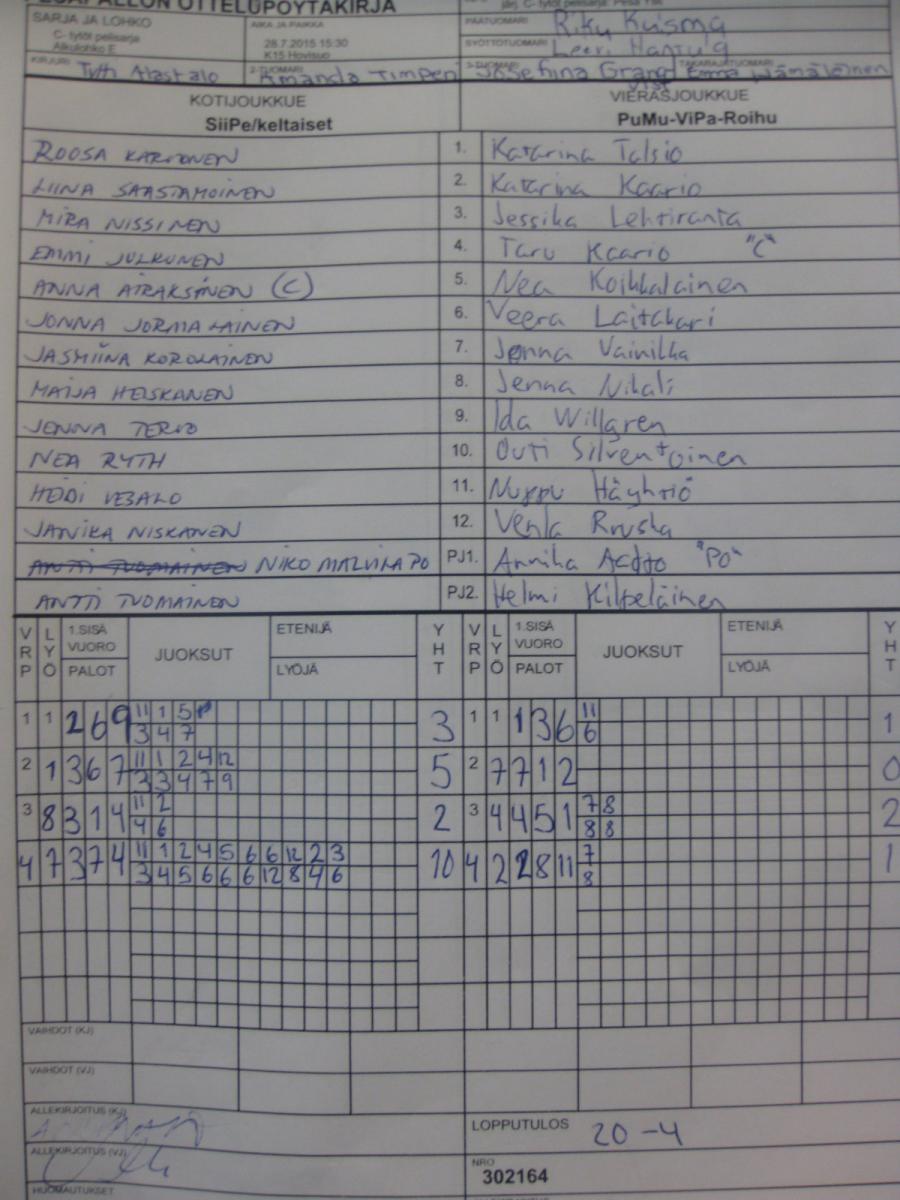 PESÄPALLON OTTELUPÖYTÄKIRJA
SARJA JA LOHKO
C- tytöt pelisarja
Alkulohko E
AIKA JA PAIKKA
28.7.2015 15:30
K15 Hovisuo
PÄÄTUOMARI Riku Kuisma
SYÖTTÖTUOMARI Leevi
KIRJURI Alastalo
2-TUOMARI Amanda Timpen
3-TUOMARI Josefina Grand
TAKARAJATUOMARI Emma Hämäläinen
KOTIJOUKKUE VIERASJOUKKUE
SiiPe/keltaiset PuMu-ViPa-Roihu
ROOSA KARTTUNEN 1. Katarina Talsio
LIINA SAASTAMOINEN 2. Katarina Kaario
MIRA NISSINEN 3. Jessika Lehtiranta
EMMI JULKUNEN 4. Taru Kaario "C"
ANNA AIRAKSINEN (C) 5. Nea Koikkalainen
JONNA JORMALAINEN 6. Veera Laitakari
JASMIINA KOROLAINEN 7. Jenna Vainikka
MAIJA HEISKANEN 8. Jenna Nikali
JENNA TERVO 9. Ida Willgren
NEA RYTH 10. Outi Silventoinen
HEIDI VESALO 11. Nuppu Häyhtiö
JANIKA NISKANEN 12. Venla Ruuska
ANTTI TUOMAINEN NIKO MALVILA PO PJ1. Annika "PO"
ANTTI TUOMAINEN PJ2. Helmi Kilpeläinen
VRP LYÖ 1.SISÄ VUORO PALOT JUOKSUT ETENIJÄ LYÖJÄ YHT VRP LYÖ 1.SISÄ VUORO PALOT JUOKSUT ETENIJÄ LYÖJÄ YHT
1 1 2 6 9 11 1 5 3 1 1 1 3 6 11 1
3 4 7 6
2 1 3 6 7 11 1 2 4 12 5 2 7 7 1 2 0
3 3 4 7 9
3 8 3 1 4 11 2 2 3 4 4 5 1 7 8 2
4 6 8 8
4 7 3 7 4 11 1 2 4 5 6 6 12 2 3 10 4 2 2 8 11 7 1
3 4 5 6 6 6 12 8 4 6 8
VAIHDOT (KJ)
VAIHDOT (VJ)
ALLEKIRJOITUS (KJ)
LOPPUTULOS 20-4
ALLEKIRJOITUS (VJ)
NRO
302164
HUOMAUTUKSET